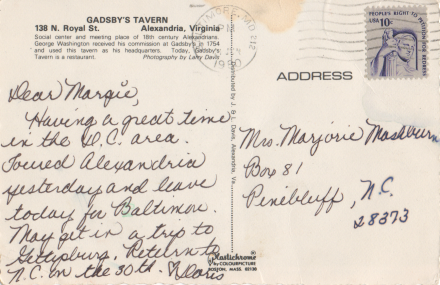 GADSBY'S TAVERN
138 N. Royal St. Alexandria, Virginia
Social center and meeting place of 18th century Alexandrians.
George Washington received his commission at Gadsby's in 1754
and used this tavern as his headquarters. Today, Gadsby's
Tavern is a restaurant. Photography by Larry Davis
Dear Margie,
Having a great time
in the D.C. area.
Toured Alexandria
yesterday and leave
today for Baltimore.
May get in a trip to
Gettysburg. Return to
N.C. on the 30th. Doris
Distributed by J. & L. Davis, Alexandria, Va.
Plastichrome
by COLOURPICTURE
BOSTON, MASS. 02130
MD 212
1980
PEOPLE'S RIGHT TO
PETITION FOR REDRESS
USA 10c
ADDRESS
Mrs. Marjorie Mashburn
Box 81
Pinebluff, N.C.
28373